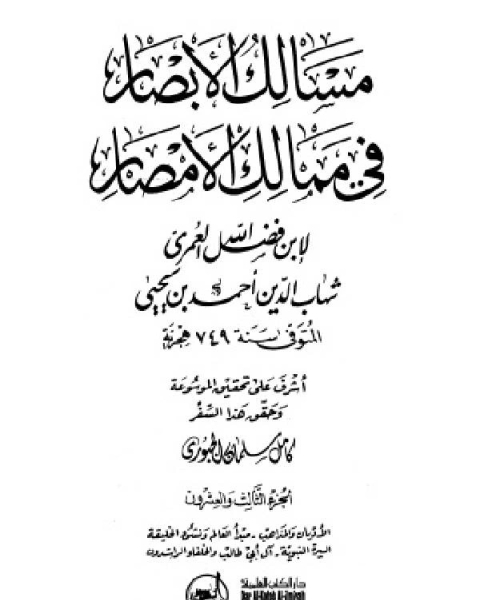 مسالك الأبصار
في ممالك الأمصار
لابن فضل الله العمري
شهاب الدين أحمد بن يحيى
المتوفى سنة ٧٤٩ هجرية
أشرف على تحقيق الموسوعة
وحقق هذا السفر
كامل سلمان الجبوري
الجزء الثالث والعشرون
الأديان والمذاهب - مبدأ العالم ونشوء الخليقة
السيرة النبوية - آل أبي طالب والخلفاء الراشدون
دار الكتب العلمية
Dar Al-Kotob Al-Ilmiyah